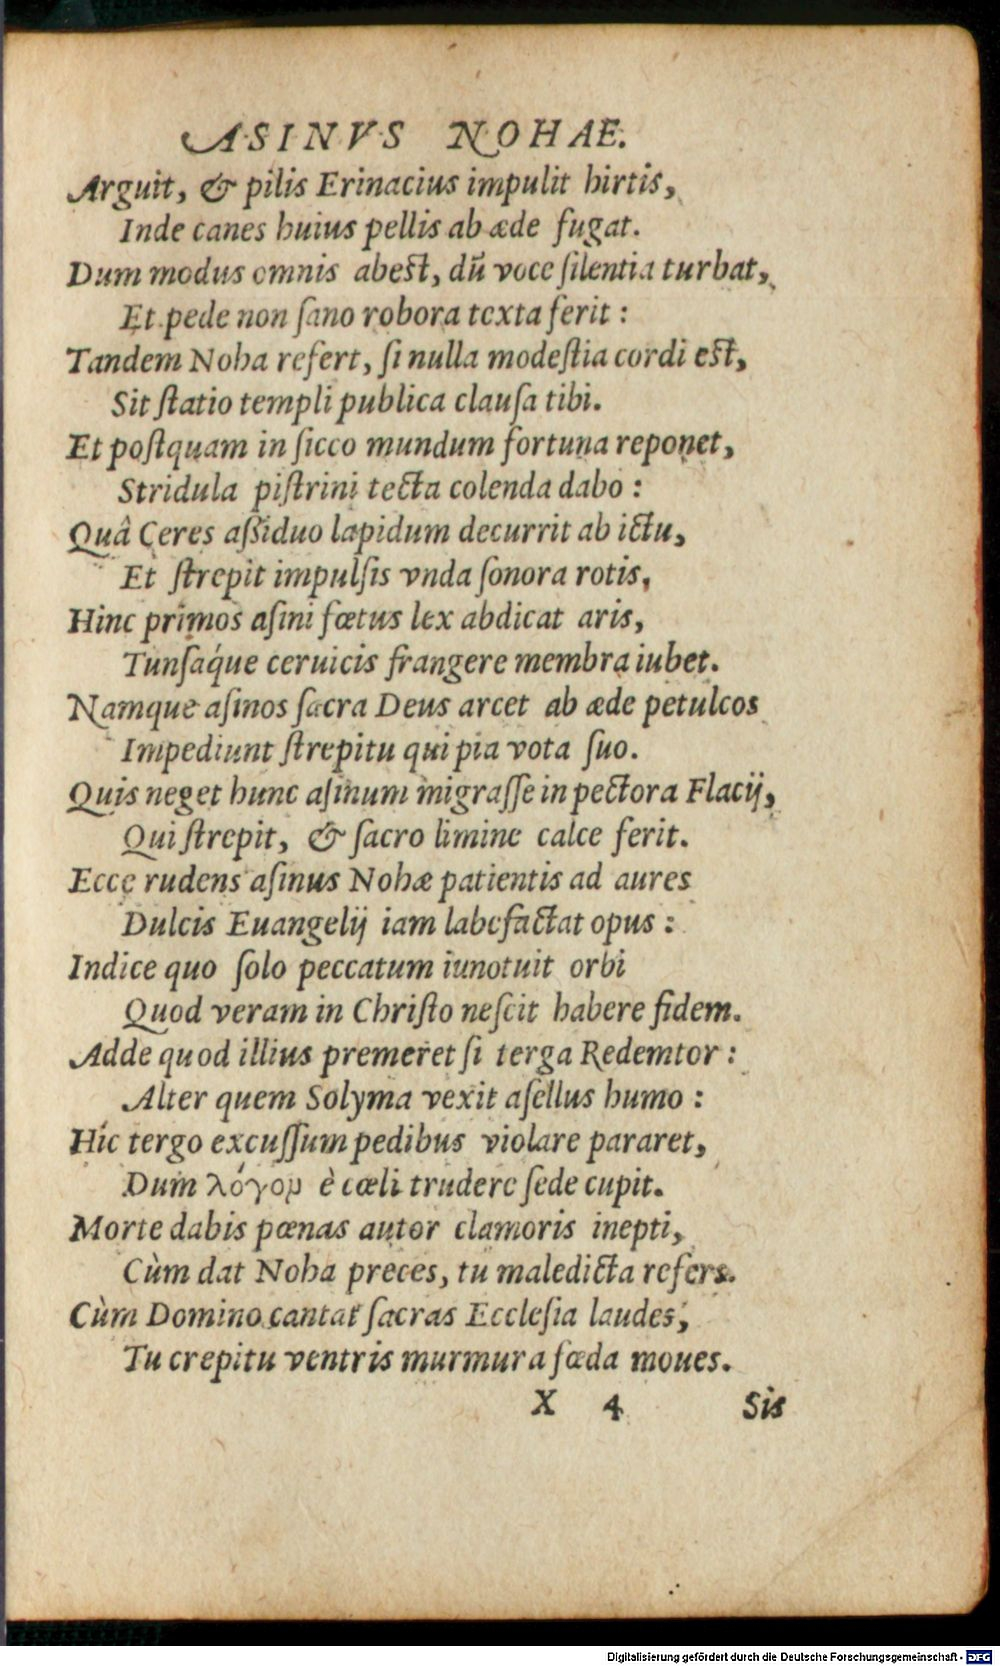 ASINVS NOHAE.
Arguit, & pilis Erinacius impulit hirtis,
Inde canes huius pellis ab æde fugat.
Dum modus omnis abest, dũ voce ſilentia turbat,
Et pede non ſano robora texta ferit:
Tandem Noha refert, ſi nulla modeſtia cordi est,
Sit ſtatio templi publica clauſa tibi.
Et poſtquam in ſicco mundum fortuna reponet,
Stridula piſtrini tecta colenda dabo:
Quâ Ceres aſsiduo lapidum decurrit ab ictu,
Et ſtrepit impulſis vnda ſonora rotis,
Hinc primos aſini fœtus lex abdicat aris,
Tunſaq́ue ceruicis frangere membra iubet.
Namque aſinos ſacra Deus arcet ab æde petulcos
Impediunt ſtrepitu qui pia vota ſuo.
Quis neget hunc aſinum migraſſe in pectora Flacij,
Qui ſtrepit, & ſacro limine calce ferit.
Ecce rudens aſinus Nohæ patientis ad aures
Dulcis Euangelij iam labefactat opus:
Indice quo ſolo peccatum iunotuit orbi
Quod veram in Chriſto neſcit habere fidem.
Adde quod illius premeret ſi terga Redemtor:
Alter quem Solyma vexit aſellus humo:
Híc tergo excuſſum pedibus violare pararet,
Dum λόγομ è cœli trudere ſede cupit.
Morte dabis pœnas autor clamoris inepti,
Cùm dat Noha preces, tu maledicta refers.
Cùm Domino cantat ſacras Eccleſia laudes,
Tu crepitu ventris murmura fœda moues.
X 4 Sis
Digitalisierung gefördert durch die Deutsche Forschungsgemeinschaft - DFG